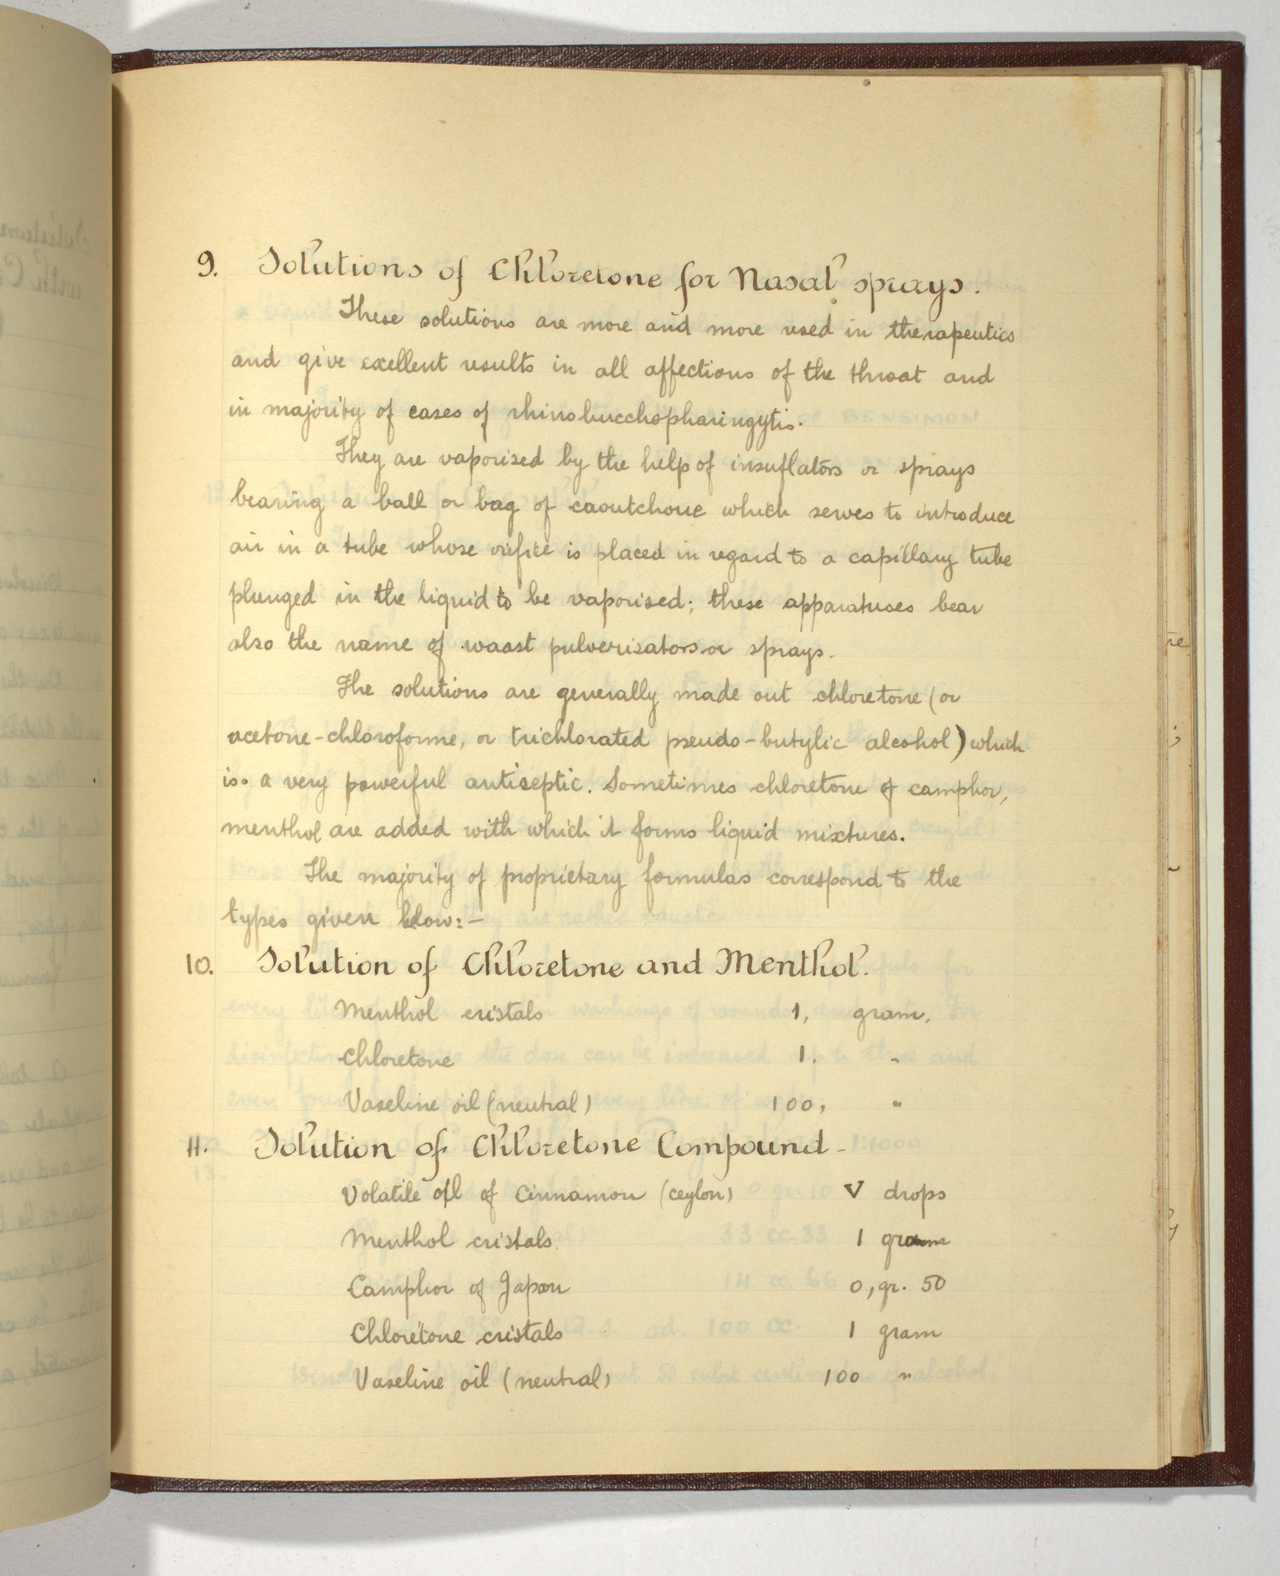 9. Solutions of Chloretone for Nasal sprays.
These solutions are more and more used in therapeutics
and give exellent results in all affections of the throat and
in majority of cases of rhinobucchopharingytis.
They are vaporised by the help of insuflators or sprays
bearing a ball or bag of caoutchouc which serves to introduce
air in a tube whose orifice is placed in regard to a capillary tube
plunged in the liquid to be vaporised; these apparatuses bear
also the name of waast pulverisators or sprays.
The solutions are generally made out chloretone (or
acetone-chloroforme, or trichlorated pseudo-butylic alcohol) which
is a very powerful antiseptic. Sometimes chloretone of camphor,
menthol are added with which it forms liquid mixtures.
The majority of proprietary formulas correspond to the
types given below:-
10. Solution of Chloretone and Menthol.
Menthol cristals 1, gram.
Chloretone 1. "
Vaseline oil (neutral) 100, "
11. Solution of Chloretone Compound-
Volatile oil of Cinnamon (ceylon) V drops
Menthol cristals 1 gram
Camphor of Japan 0, gr. 50
Chloretone cristals 1 gram
Vaseline oil (neutral) 100 "